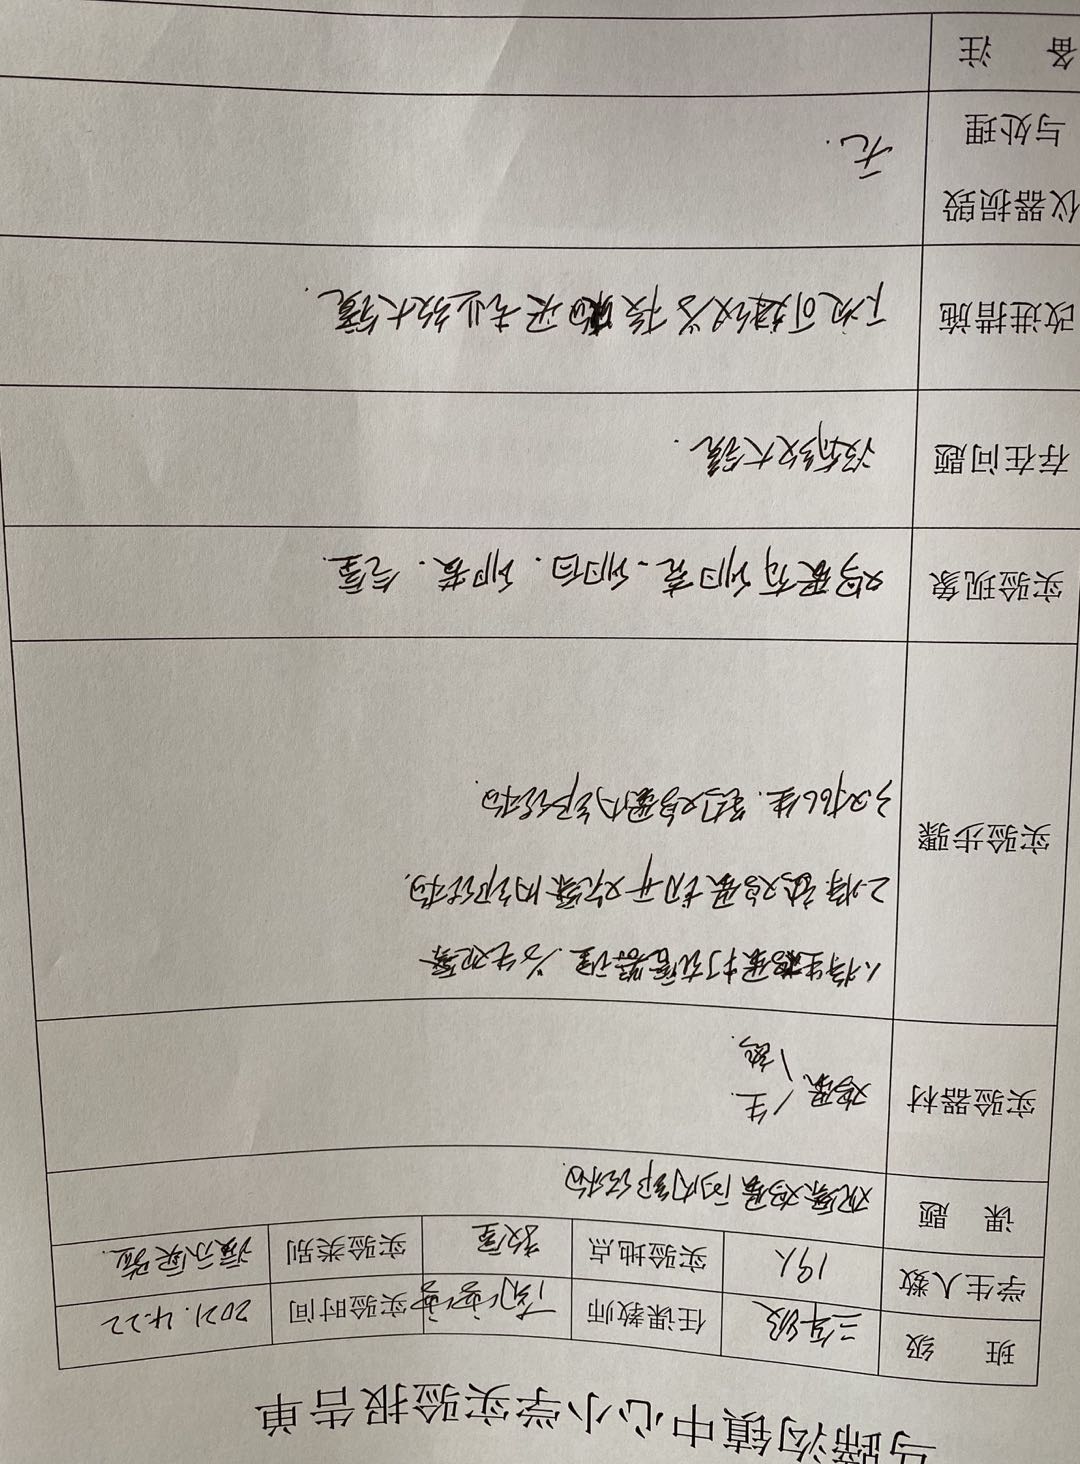 马蹄沟镇中心小学实验报告单
班 级 三年级 任课教师 实验时间 2021.4.22
学生人数 19人 实验地点 教室 实验类别 演示实验
课 题 观察鸡蛋的内部结构
实验器材 鸡蛋 生
熟
实验步骤 1、将生鸡蛋打在容器里 学生观察
2、将熟鸡蛋切开观察内部结构
3、对比生、熟鸡蛋内部结构
实验现象 鸡蛋有卵壳、卵白、卵黄、气室.
存在问题 没有放大镜.
改进措施 下次可建议学校购买专业放大镜.
仪器损毁
与处理 无.
备 注